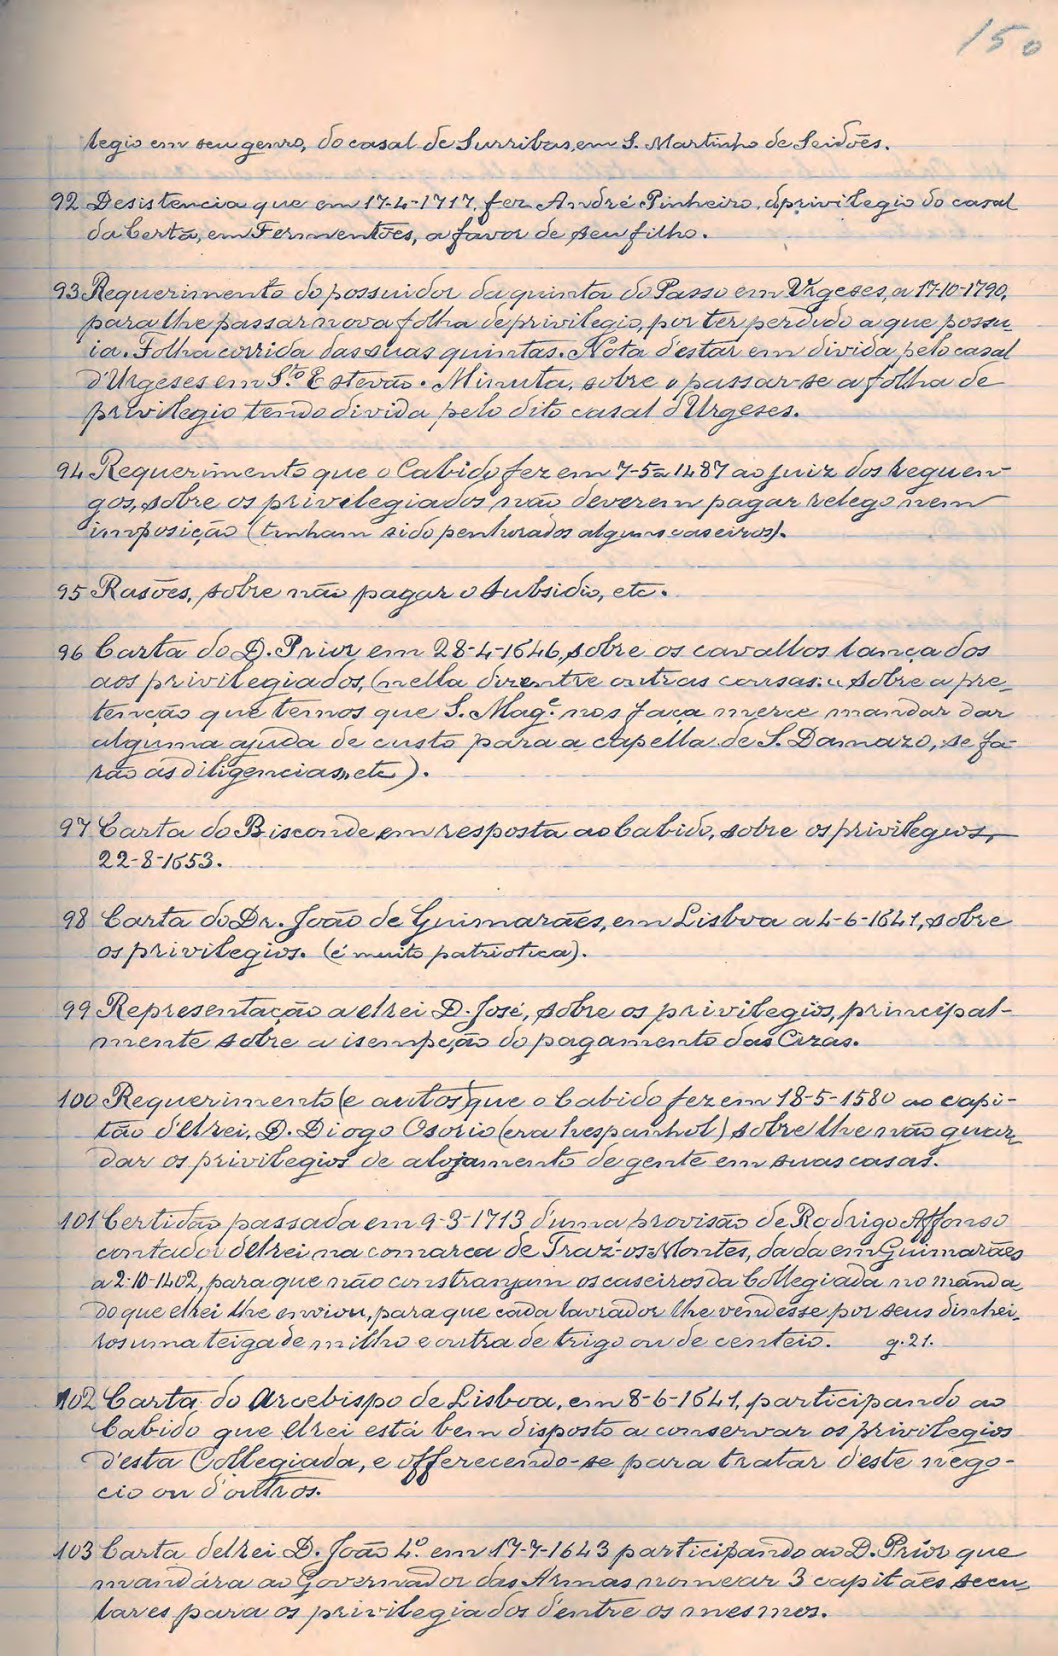 150
legio em seu genro, do casal de Surribas, em S. Martinho de Seidões.
92 Desistencia que em 17-4-1717, fez André Pinheiro, d privilegio do casal
da Certã, em Fermentões, a favor de seu filho.
93 Requerimento do possuidor da quinta do Passo em Urgeses, a 17-10-1790,
para lhe passar nova folha de privilegio, por ter perdido a que possu-
ia. Folha corrida das suas quintas. Nota d'estar em divida pelo casal
d'Urgeses em S.to Estevão. Minuta, sobre o passar-se a folha de
privilegio tendo divida pelo dito casal d'Urgeses.
94 Requerimento que o Cabido fez em 7-5-1487 ao juiz dos reguen-
gos, sobre os privilegiados não deverem pagar relego nem
imposição (tinham sido penhorados alguns caseiros).
95 Rasões, sobre não pagar o subsidio, etc.
96 Carta do D. Prior em 28-4-1646, sobre os cavallos lançados
aos privilegiados, (nella diz entre outras cousas: "sobre a pre-
tenção que temos que S. Mag.e nos faça merce mandar dar
alguma ajuda de custo para a capella de S. Damazo, se fa-
rão as diligencias", etc).
97 Carta do Bisconde em resposta ao Cabido, sobre os privilegios,
22-8-1653.
98 Carta do Dr. João de Guimarães, em Lisboa a 4-6-1641, sobre
os privilegios. (é muito patriotica).
99 Representação a elrei D. José, sobre os privilegios, principal-
mente sobre a isempção do pagamento das Cizas.
100 Requerimento (e autos) que o Cabido fez em 18-5-1580 ao capi-
tão d'elrei, D. Diogo Osorio (era hespanhol) sobre lhe não guar-
dar os privilegios de alojamento de gente em suas casas.
101 Certidão passada em 9-3-1713 d'uma provisão de Rodrigo Affonso
contador delrei na comarca de Traz-os-Montes, dada em Guimarães
a 2-10-1402, para que não constranjam os caseiros da Collegiada no manda-
do que elrei lhe enviou, para que cada lavrador lhe vendesse por seus dinhei-
ros uma teiga de milho e outra de trigo ou de centeio. g. 21.
102 Carta do Arcebispo de Lisboa, em 8-6-1641, participando ao
Cabido que elrei está bem disposto a conservar os privilegios
d'esta Collegiada, e offerecendo-se para tratar d'este nego-
cio ou d'outros.
103 Carta delrei D. João 4.º em 17-7-1643 participando ao D. Prior que
mandára ao Governador das Armas nomear 3 capitães secu-
lares para os privilegiados d'entre os mesmos.